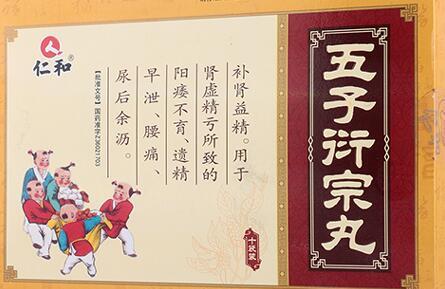 五子衍宗丸
补肾益精。用于
肾虚精亏所致的
阳痿不育、遗精
早泄、腰痛、
尿后余沥。
【批准文号】国药准字Z36021703
仁和®
十袋装